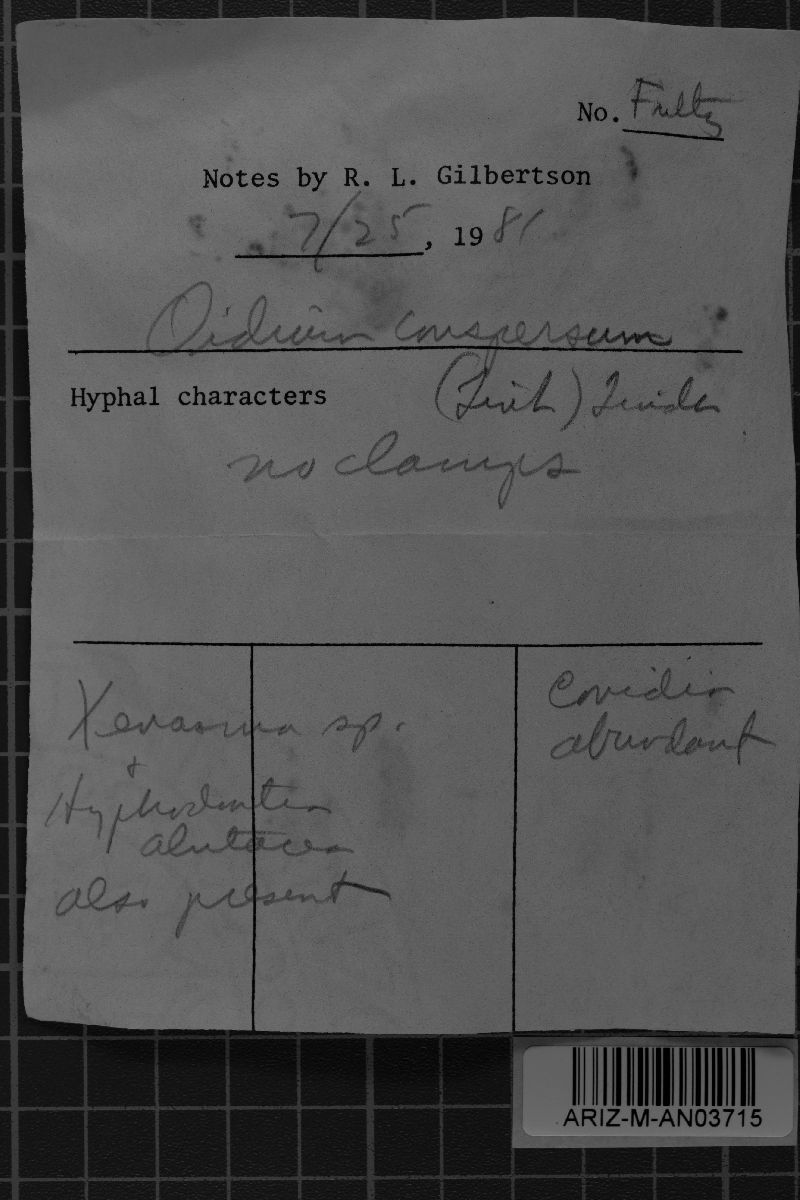 No. Fultz
Notes by R. L. Gilbertson
7/25, 1981
Oidium conspersum
Hyphal characters (Link) Linder
no clamps
Xenasma sp.
+
Hyphodontia
alutacea
also present
Conidia
abundant
ARIZ-M-AN03715